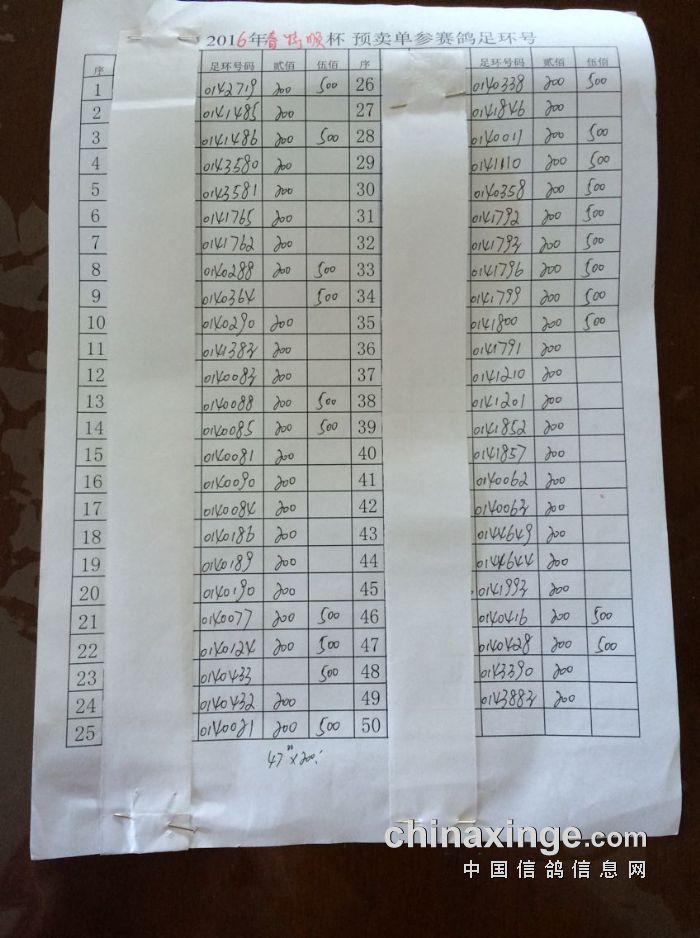 2016年春特顺杯 预卖单参赛鸽足环号
序 足环号码 贰佰 伍佰 序 足环号码 贰佰 伍佰
1 0142719 200 500 26 0140338 200 500
2 0141485 200 27 0141846 200
3 0141486 200 500 28 0140011 200 500
4 0143580 200 29 0141110 200 500
5 0143581 200 30 0140358 200 500
6 0141765 200 31 0141792 200 500
7 0141762 200 32 0141793 200 500
8 0140288 200 500 33 0141796 200 500
9 0140364 500 34 0141799 200 500
10 0140290 200 35 0141800 200 500
11 0141383 200 36 0141791 200
12 0140083 200 37 0141210 200
13 0140088 200 500 38 0141201 200
14 0140085 200 500 39 0141852 200
15 0140081 200 40 0141857 200
16 0140090 200 41 0140062 200
17 0140084 200 42 0140063 200
18 0140186 200 43 0144649 200
19 0140189 200 44 0144644 200
20 0140190 200 45 0141993 200
21 0140077 200 500 46 0140416 200 500
22 0140124 200 500 47 0140428 200 500
23 0140433 500 48 0143390 200
24 0140432 200 49 0143883 200
25 0140021 200 500 50
47 x 200
chinaxinge.com
中国信鸽信息网